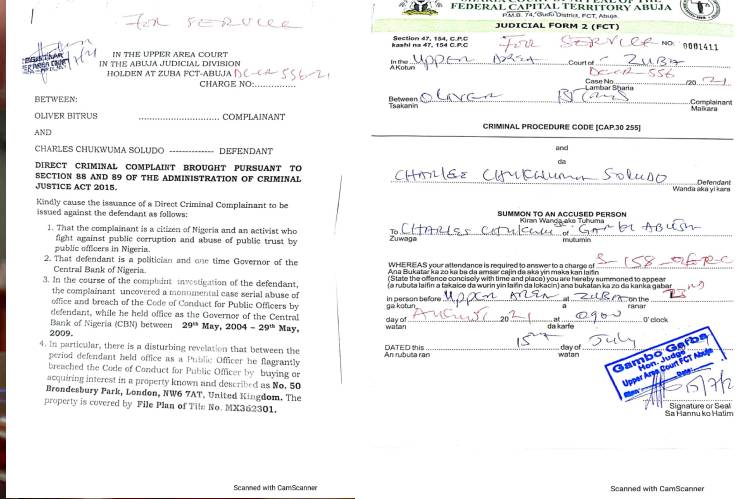 For SERVICE
IN THE UPPER AREA COURT
IN THE ABUJA JUDICIAL DIVISION
HOLDEN AT ZUBA FCT-ABUJA
CHARGE NO:...............
BETWEEN:
OLIVER BITRUS ............................ COMPLAINANT
AND
CHARLES CHUKWUMA SOLUDO -------------- DEFENDANT
DIRECT CRIMINAL COMPLAINT BROUGHT PURSUANT TO
SECTION 88 AND 89 OF THE ADMINISTRATION OF CRIMINAL
JUSTICE ACT 2015.
Kindly cause the issuance of a Direct Criminal Complainant to be
issued against the defendant as follows:
1. That the complainant is a citizen of Nigeria and an activist who
fight against public corruption and abuse of public trust by
public officers in Nigeria.
2. That defendant is a politician and one time Governor of the
Central Bank of Nigeria.
3. In the course of the complaint investigation of the defendant,
the complainant uncovered a monumental case serial abuse of
office and breach of the Code of Conduct for Public Officers by
defendant, while he held office as the Governor of the Central
Bank of Nigeria (CBN) between 29th May, 2004 – 29th May,
2009.
4. In particular, there is a disturbing revelation that between the
period defendant held office as a Public Officer he flagrantly
breached the Code of Conduct for Public Officer by buying or
acquiring interest in a property known and described as No. 50
Brondesbury Park, London, NW6 7AT, United Kingdom. The
property is covered by File Plan of Tile No. MX362301.
Scanned with CamScanner
FEDERAL CAPITAL TERRITORY ABUJA
P.M.B. 74, Gudu District, FCT, Abuja.
JUDICIAL FORM 2 (FCT)
Section 47, 154, C.P.C
kashi na 47, 154, C.P.C
For SERVICE NO: 0001411
In the UPPER AREA Court of ZUBA
A Kotun
Case No. 556 /20 21
Lambar Sharia
Between OLIVER Complainant
Tsakanin Maikara
CRIMINAL PROCEDURE CODE [CAP.30 255]
and
da
CHARLES CHUKWUMA SOLUDO
Defendant
Wanda aka yi kara
SUMMON TO AN ACCUSED PERSON
Kiran Wanda ake Tuhuma
To CHARLES of
Zuwaga mutumin
WHEREAS your attendance is required to answer to a charge of S 158
Ana Bukatar ka zo ka ba da amsar cajin da aka yin maka kan laifin
(State the offence concisely with time and place) you are hereby summoned to appear
(a rubuta laifin a takaice da wurin yin laifin da lokacin) ana bukatan ka zo da kanka gabar
in person before UPPER AREA at ZUBA on the
ga kotun a ranar
day of AUGUST 20 21 at 0900 O' clock
watan da karfe
DATED this 15 day of July
An rubuta ran watan
Gambo Garba
Hon. Judge
Upper Area Court FCT Abuja
Signature or Seal
Sa Hannu ko Hatim
Scanned with CamScanner